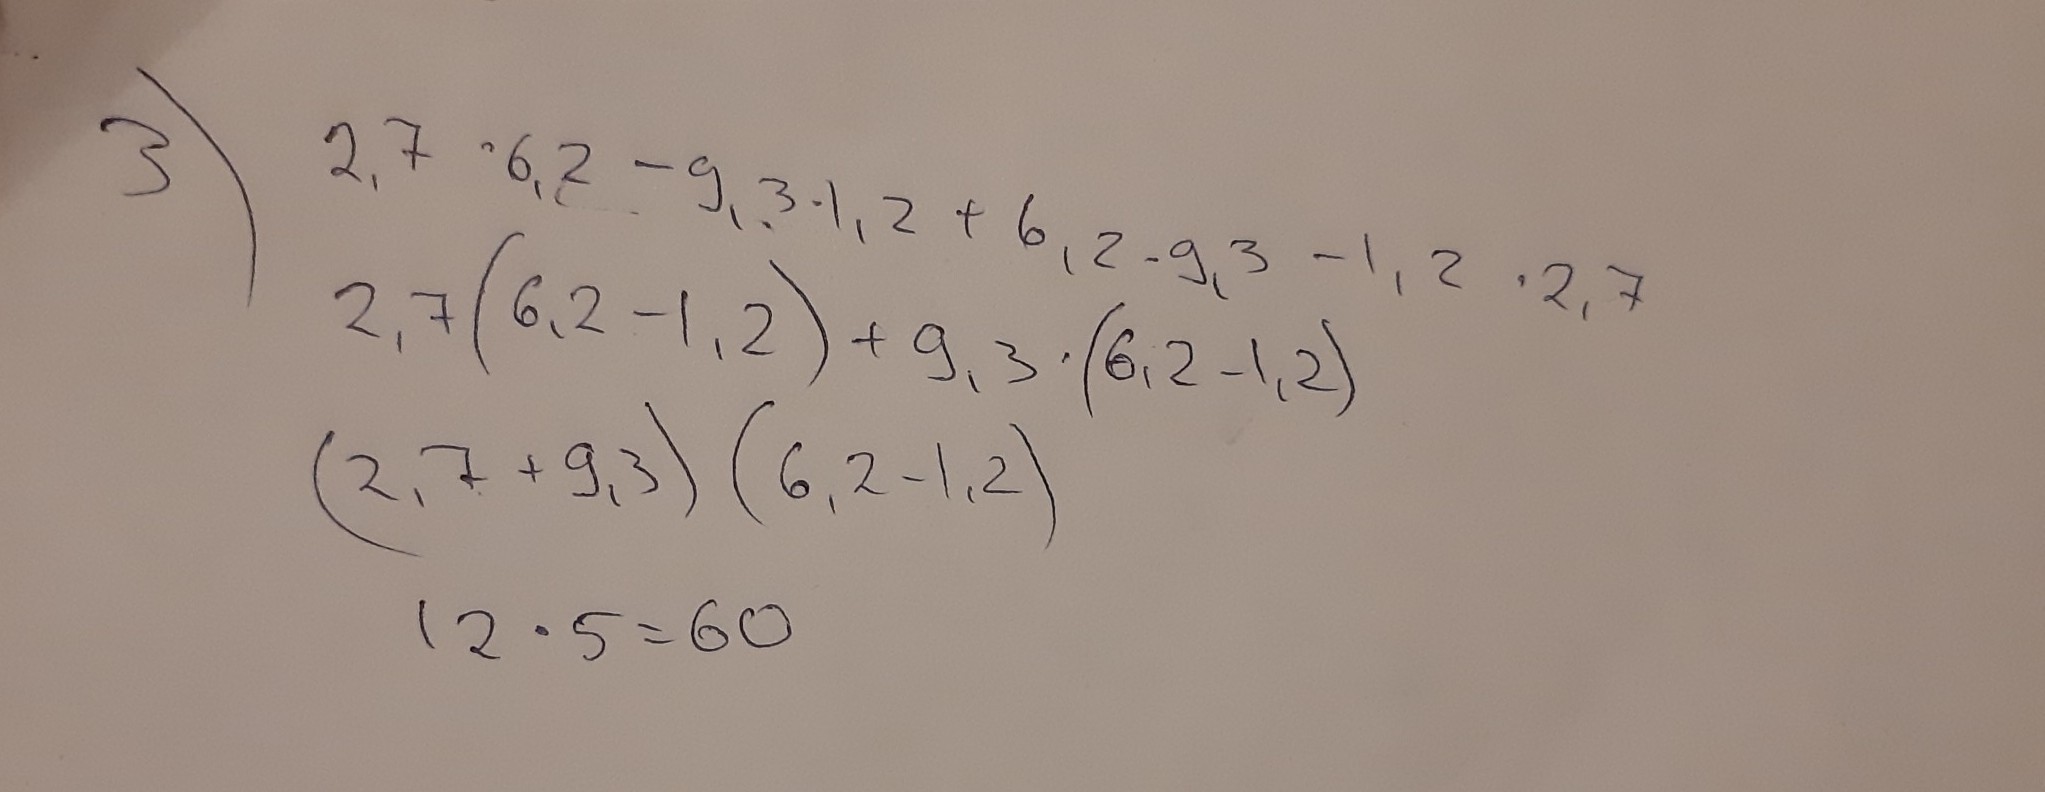 3) 2,7 · 6,2 - 9,3 · 1,2 + 6,2 - 9,3 - 1,2 · 2,7
2,7(6,2 - 1,2) + 9,3 · (6,2 - 1,2)
(2,7 + 9,3) (6,2 - 1,2)
12 · 5 = 60